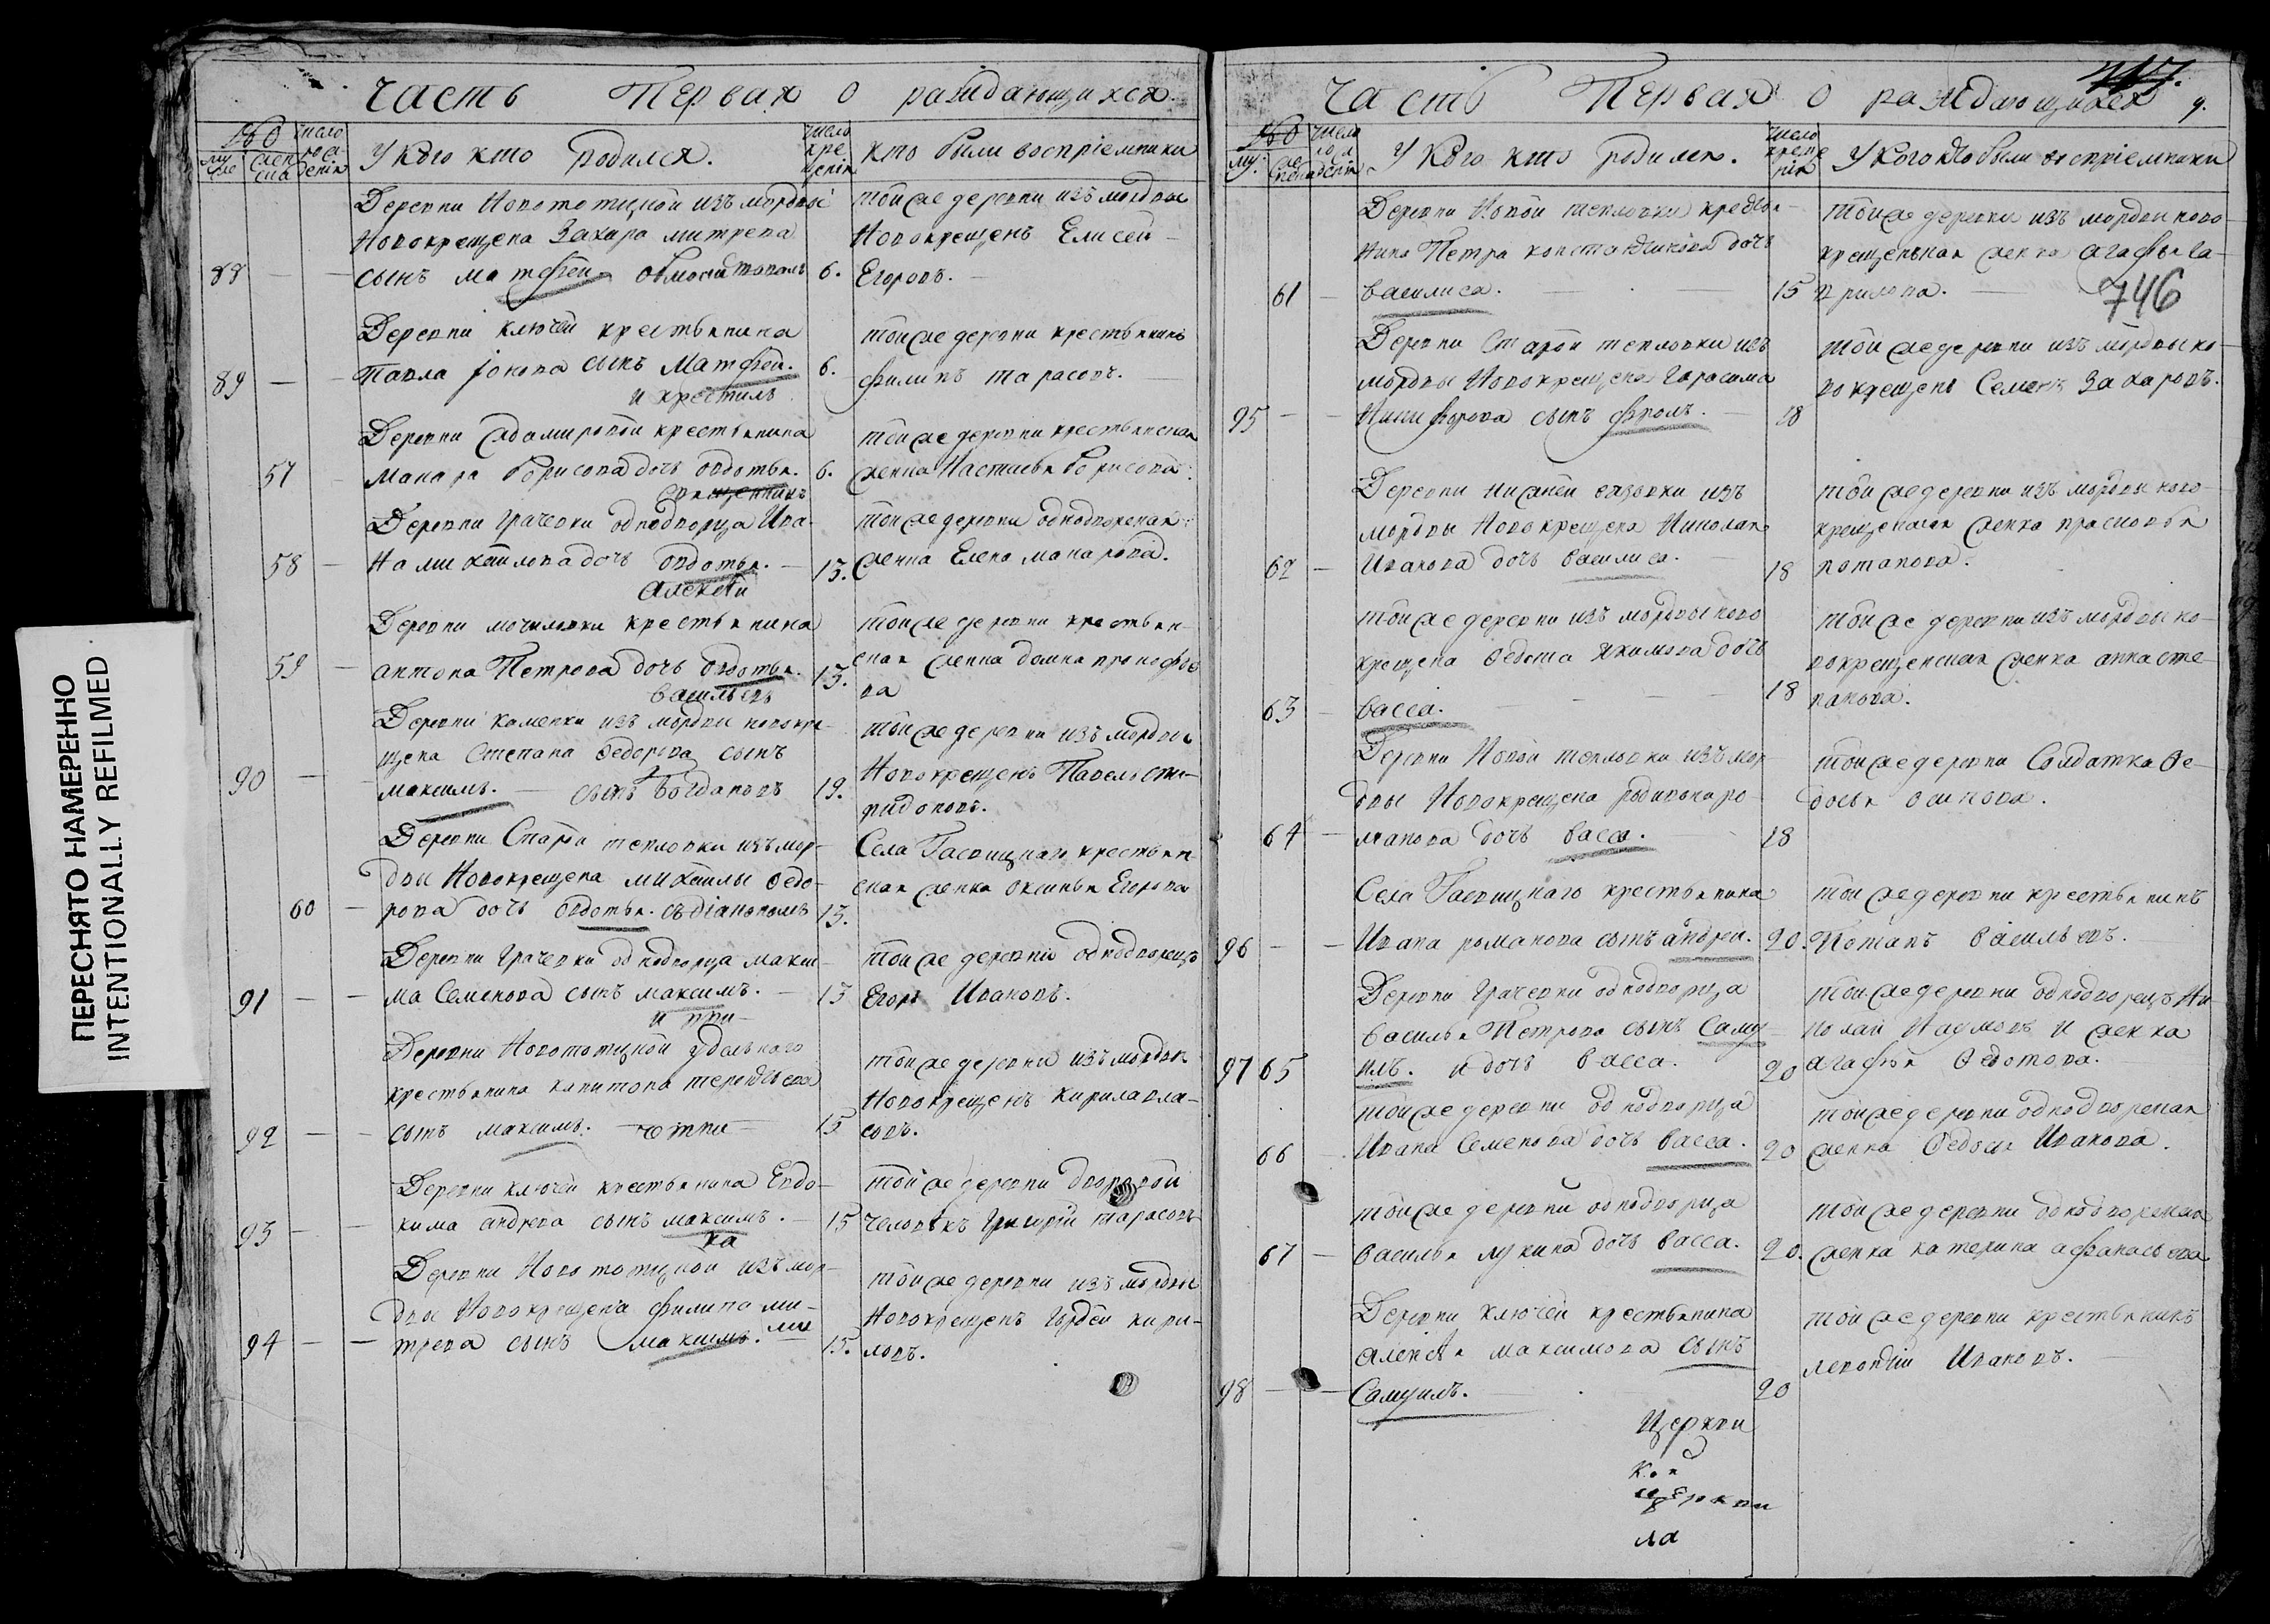 ПЕРЕСНЯТО НАМЕРЕННО
INTENTIONALLY REFILMED
часть Первая о раждающихся.
число
У кого кто родился.
число
кре
щенiя
кто были воспрiемники
Деревни Новототицкой изъ мордвы
Новокрещена Захара митрева
88 сынъ матфей. 6.
той же деревни изъ мордвы
Новокрещенъ Елисей
Егоровъ.
Деревни ключей крестьянина
89 Павла сынъ Матфей. 6.
и крестилъ
той же деревни крестьянинъ
филипъ тарасовъ.
Деревни крестьянина
57 Макара борисова дочь овдотья. 6.
священникъ
той же деревни крестьянская
женка Настасья борисова.
Деревни грачевки однодворца Ива-
58 на михайлова дочь овдотья. 13.
алексей
той же деревни однодворская
женка Елена макарова.
Деревни мочиловки крестьянина
59 антона Петрова дочь овдотья. 13.
васильевъ
той же деревни крестьян-
ская женка домна прокофье
ва
Деревни каменки изъ мордвы новокре-
щена Степана Федорова сынъ
90 максимъ. сынъ богдановъ 19.
той же деревни изъ мордвы
Новокрещенъ Павелъ спи-
ридоновъ.
Деревни Старой тепловки изъ мор-
двы Новокрещена михайлы федо-
60 рова дочь овдотья. съ дiакономъ 13.
Села Гасвицкаго крестьян-
ская женка оксинья Егорова
Деревни грачевки однодворца макси-
91 ма Семенова сынъ максимъ. 13
и при
той же деревни однодворецъ
Егоръ Ивановъ.
Деревни Новототицкой удельнаго
крестьянина капитона терентьева
92 сынъ максимъ. 15
той же деревни изъ мордвы
Новокрещенъ кирила вла-
совъ.
Деревни ключей крестьянина Евдо-
93 кима андрева сынъ максимъ. 15
ка
той же деревни дворовой
человѣкъ григорiй тарасовъ
Деревни Новототицкой изъ мор-
двы Новокрещена филипа ми-
94 трева сынъ максимъ. ми 15.
той же деревни изъ мордвы
Новокрещенъ гордей кири-
ловъ.
Часть Первая о раждающихся 9.
746
число
У кого кто родился.
число
креще
нiя
У кого кто были воспрiемники
Деревни Новой тепловки крестья-
нина Петра константинова дочь
61 василиса. 15
той же деревни изъ мордвы ново-
крещенская женка агафья га-
врилова.
Деревни Старой тепловки изъ
мордвы Новокрещена Гарасима
95 Никифорова сынъ фролъ. 18
той же деревни изъ мордвы но-
вокрещенъ Семенъ Захаровъ.
Деревни нижней сазовки изъ
мордвы Новокрещена Николая
62 Иванова дочь василиса. 18
той же деревни изъ мордвы ново-
крещенская женка прасковья
потапова.
той же деревни изъ мордвы ново
крещена Федота якимова дочь
63 васса. 18
той же деревни изъ мордвы но-
вокрещенская женка анна сте-
панова.
Деревни Новой тепловки изъ мор-
двы Новокрещена родивона ро-
64 манова дочь васса. 18
той же деревни Солдатка Фе-
досья осипова.
Села Гасвицкаго крестьянина
96 Ивана романова сынъ андрей. 20.
той же деревни крестьянинъ
Потапъ васильевъ.
Деревни Грачевки однодворца
Василья Петрова сынъ Саму
97 65 илъ. и дочь васса. 20
той же деревни однодворецъ Ни
колай Наумовъ и женка
агафья Федотова.
той же деревни однодворца
66 Ивана Семенова дочь васса. 20
той же деревни однодворская
женка Федосья Иванова.
той же деревни однодворца
67 василья лукина дочь васса. 20.
той же деревни однодворская
женка катерина афанасьева
Деревни ключей крестьянина
алексея максимова сынъ
98 Самуилъ. 20
той же деревни крестьянинъ
леонтiй Ивановъ.
Церкви
церкви
ла